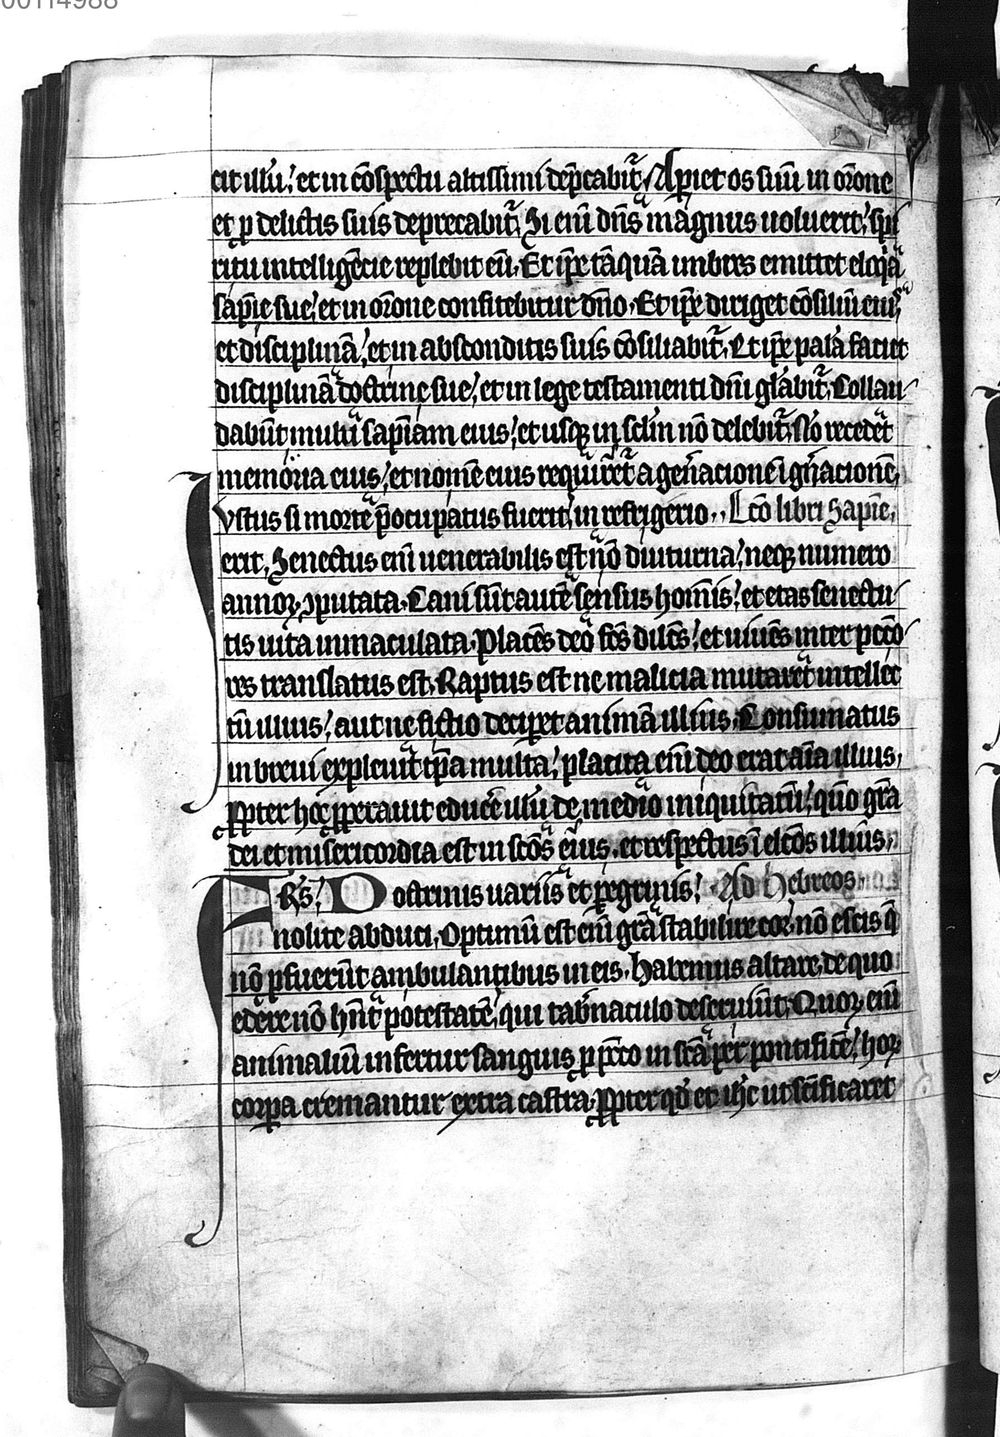 00114988
cit illū. et in cōspectu altissimi dep̄cabit᷑. Aꝑiet os suū in or̄one
et ꝓ delictis suis deprecabit᷑. Si enī dn̄s magnus uoluerit. spi
ritu intelligēcie replebit eū. Et ip̄e tāquā imbres emittet eloq̄a
sapīe sue. et in or̄one confitebitur dn̄o. Et ip̄e diriget cōsiliū eius
et disciplinā. et in absconditis suis cōsiliabit᷑. Et ip̄e palā faciet
disciplinā doctrine sue. et in lege testamenti dn̄i gl̄abit᷑. Collau
dabūt multi sapīam eius. et usqꝫ in sclm̄ nō delebit᷑. Nō recedet
memoria eius. et nomē eius requiret᷑ a gen̄acione ī gn̄acionē.
Iustus si morte p̄ocupatus fuerit. in refrigerio. Lc̄o libri Sapīe.
erit. Senectus enī uenerabilis est nō diuturna. neqꝫ numero
annoꝝ ꝯputata. Cani sūt autē sensus hom̄is. et etas senectu
tis uita inmaculata. Placēs deo fc̄s dilc̄s. et uiuēs inter pcc̄o
res translatus est. Raptus est ne malicia mutaret intellec
tū illius. aut ne fictio deciꝑet animā illius. Consumatus
in breui expleuit tp̄a multa. placita enī deo erat aīa illius.
ꝓpter hoc ꝓperauit educ̄e illū de medio iniquitatū. qm̄o gr̄a
dei et misericordia est in sc̄os eius. et respectus ī elc̄os illius.
Fr̄s. Doctrinis uariis et ꝑegrinis. Ad hebreos
nolite abduci. Optimū est enī gr̄a stabilire cor. nō escis q̄
nō ꝓfuerūt ambulantibus in eis. Habemus altare. de quo
edere nō hn̄t potestatē. qui tab̄naculo deseruiūt. Quoꝝ enī
animaliū infertur sanguis ꝓ pcc̄o in sc̄a ꝑ pontificē. hoꝝ
corꝑa cremantur extra castra. ꝓpter qd̄ et ih̄c ut sc̄ificaret